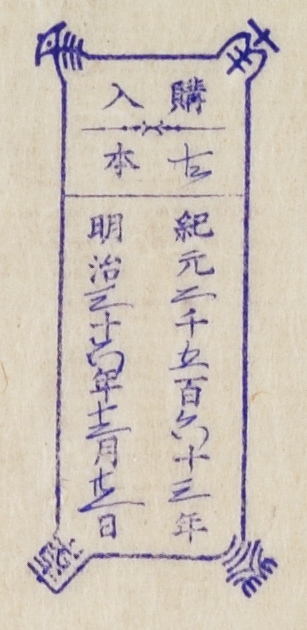 購入
古本
紀元二千五百六十三年
明治三十六年十二月廿二日